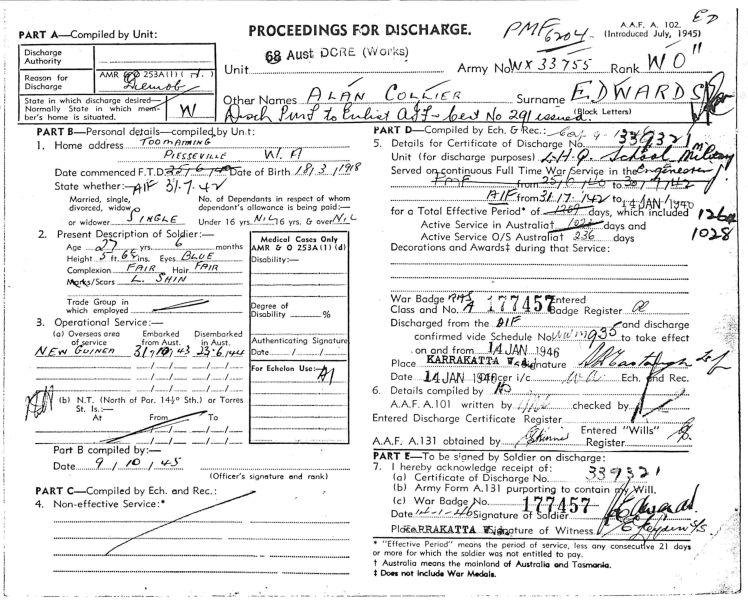 ED
PART A—Compiled by Unit:
PROCEEDINGS FOR DISCHARGE.
PMF 6204
A.A.F. A. 102.
(Introduced July, 1945)
Discharge Authority
Reason for Discharge
AMR & O 253A(1)( )
Demob
State in which discharge desired—
Normally State in which member's home is situated.
W
68 Aust DCRE (Works)
Unit
Army No WX 33755 Rank WO"
Other Names ALAN COLLIER Surname EDWARDS
(Block Letters)
Disch to Enlist AIF - Cert No 291 issued.
PART B—Personal details—compiled by Unit:
1. Home address
PIESSEVILLE W. A
Date commenced F.T.D. Date of Birth 18/3/1918
State whether:— AIF 31.7.42
Married, single, divorced, widow or widower
SINGLE
No. of Dependants in respect of whom dependant's allowance is being paid:—
Under 16 yrs. NIL 16 yrs. & over NIL
2. Present Description of Soldier:—
Age 27 yrs. 6 months
Height 5 ft. ins. Eyes BLUE
Complexion FAIR Hair FAIR
Marks/Scars L. SHIN
Trade Group in which employed
Medical Cases Only
AMR & O 253A(1) (d)
Disability:—
Degree of Disability %
Authenticating Signature
Date / /
For Echelon Use:—
A1
3. Operational Service:—
(a) Overseas area of service
Embarked from Aust.
Disembarked in Aust.
NEW GUINEA 43 23.6.44
(b) N.T. (North of Par. 14½° Sth.) or Torres St. Is.:—
At From To
Part B compiled by:—
Date 9 / 10 / 45
(Officer's signature and rank)
PART C—Compiled by Ech. and Rec.:
4. Non-effective Service:*
PART D—Compiled by Ech. & Rec.:
5. Details for Certificate of Discharge No. 339321
Unit (for discharge purposes) L.H.Q. School Military Engineering
Served on continuous Full Time War Service in the
PMF from 25/6/40 to 30/7/42
AIF from 31/7/42 to 14 JAN 1946
for a Total Effective Period* of days, which included
Active Service in Australia† days and 1028
Active Service O/S Australia† 236 days
Decorations and Awards‡ during that Service:
War Badge Class and No. A 177457 Entered Badge Register
Discharged from the AIF and discharge
confirmed vide Schedule No. 935 to take effect
on and from 14 JAN 1946
Place KARRAKATTA W.A. Signature
Date 14 JAN 1946 Officer i/c WA Ech. and Rec.
6. Details compiled by
A.A.F. A.101 written by checked by
Entered Discharge Certificate Register
A.A.F. A.131 obtained by Entered "Wills" Register
PART E—To be signed by Soldier on discharge:
7. I hereby acknowledge receipt of:
(a) Certificate of Discharge No. 339321
(b) Army Form A.131 purporting to contain my Will.
(c) War Badge No. 177457
Date 14-1-46 Signature of Soldier
Place KARRAKATTA W.A. Signature of Witness
* "Effective Period" means the period of service, less any consecutive 21 days
or more for which the soldier was not entitled to pay.
† Australia means the mainland of Australia and Tasmania.
‡ Does not include War Medals.